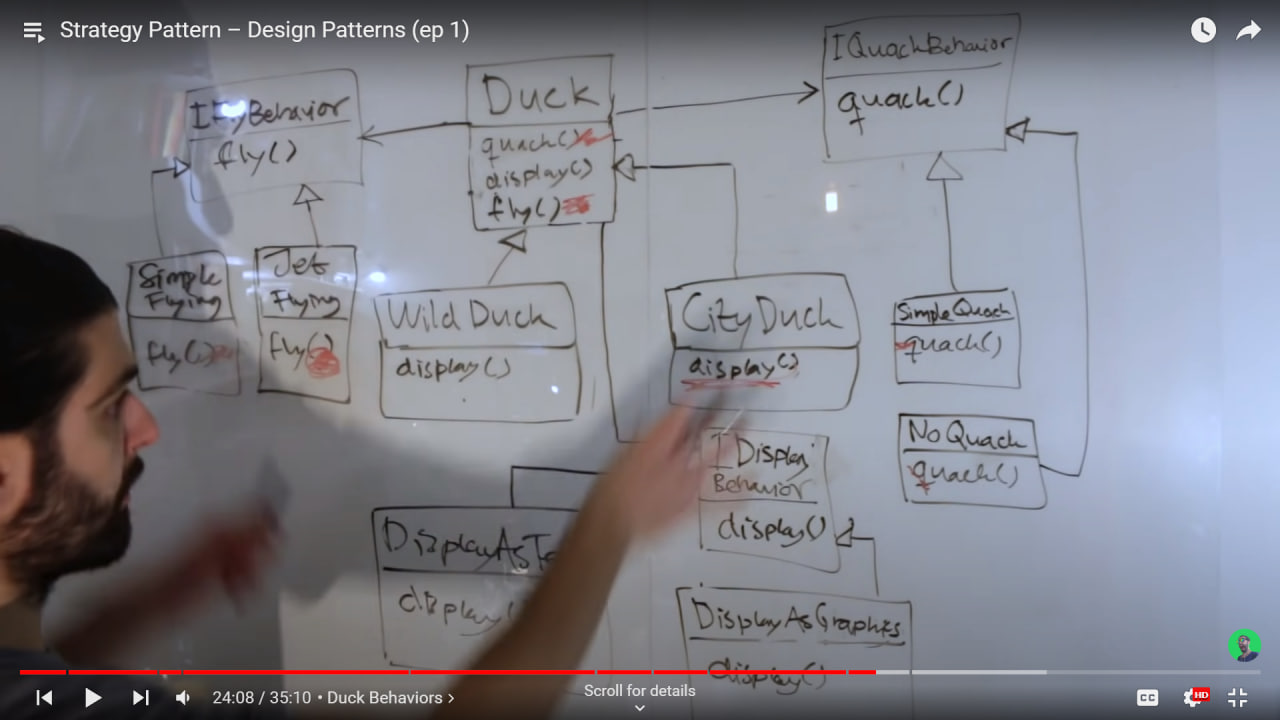 Strategy Pattern – Design Patterns (ep 1)
IFlyBehavior
fly()
Duck
quack()
display()
fly()
IQuackBehavior
quack()
Simple
Flying
fly()
Jet
Flying
fly()
Wild Duck
display()
City Duck
display()
Simple Quack
quack()
No Quack
quack()
IDisplay
Behavior
display()
display()
DisplayAsGraphics
display()
24:08 / 35:10 • Duck Behaviors
Scroll for details
CC
HD